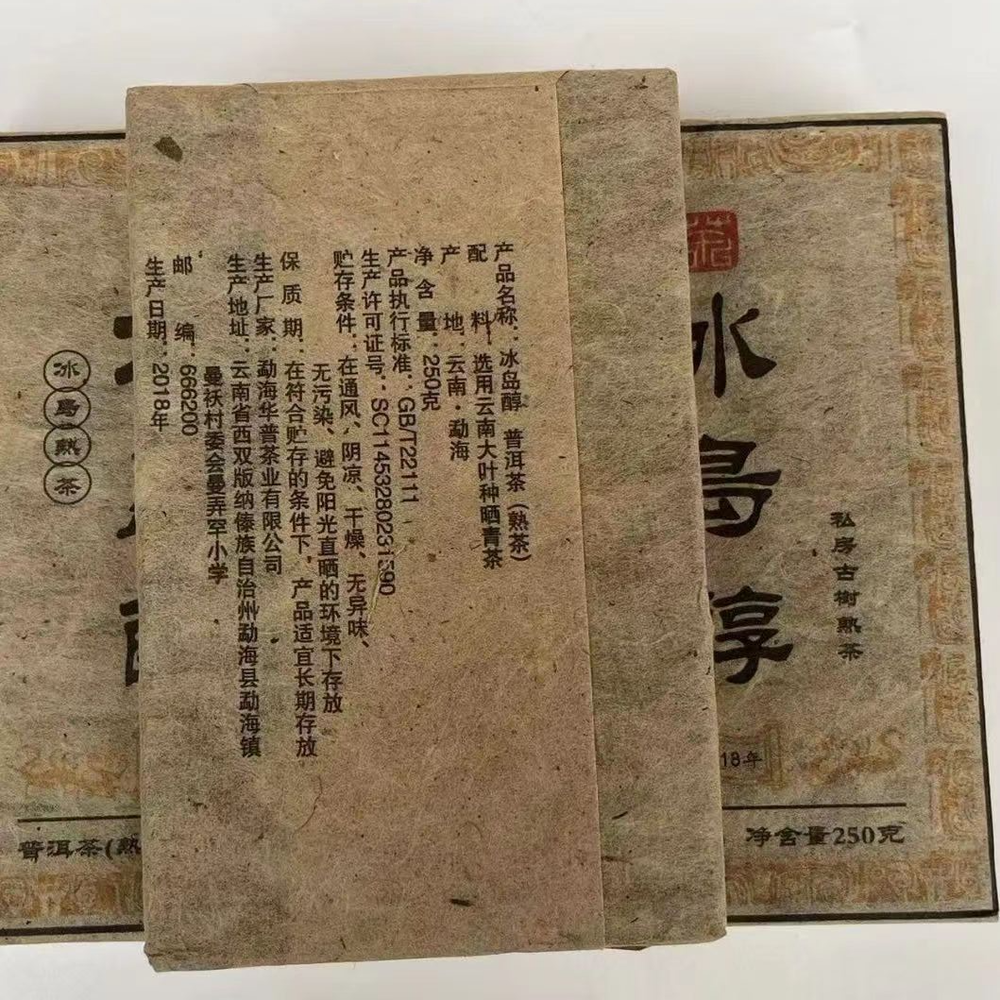 产品名称：冰岛醇 普洱茶（熟茶）
配料：选用云南大叶种晒青茶
产地：云南·勐海
净含量：250克
产品执行标准：GB/T22111
生产许可证号：SC11453280231590
贮存条件：在通风、阴凉、干燥、无异味、
无污染、避免阳光直晒的环境下存放
保质期：在符合贮存的条件下，产品适宜长期存放
生产厂家：勐海华普茶业有限公司
生产地址：云南省西双版纳傣族自治州勐海县勐海镇
曼袄村委会曼弄罕小学
邮编：666200
生产日期：2018年
冰岛醇
私房古树熟茶
18年
净含量250克
冰岛熟茶
普洱茶(熟